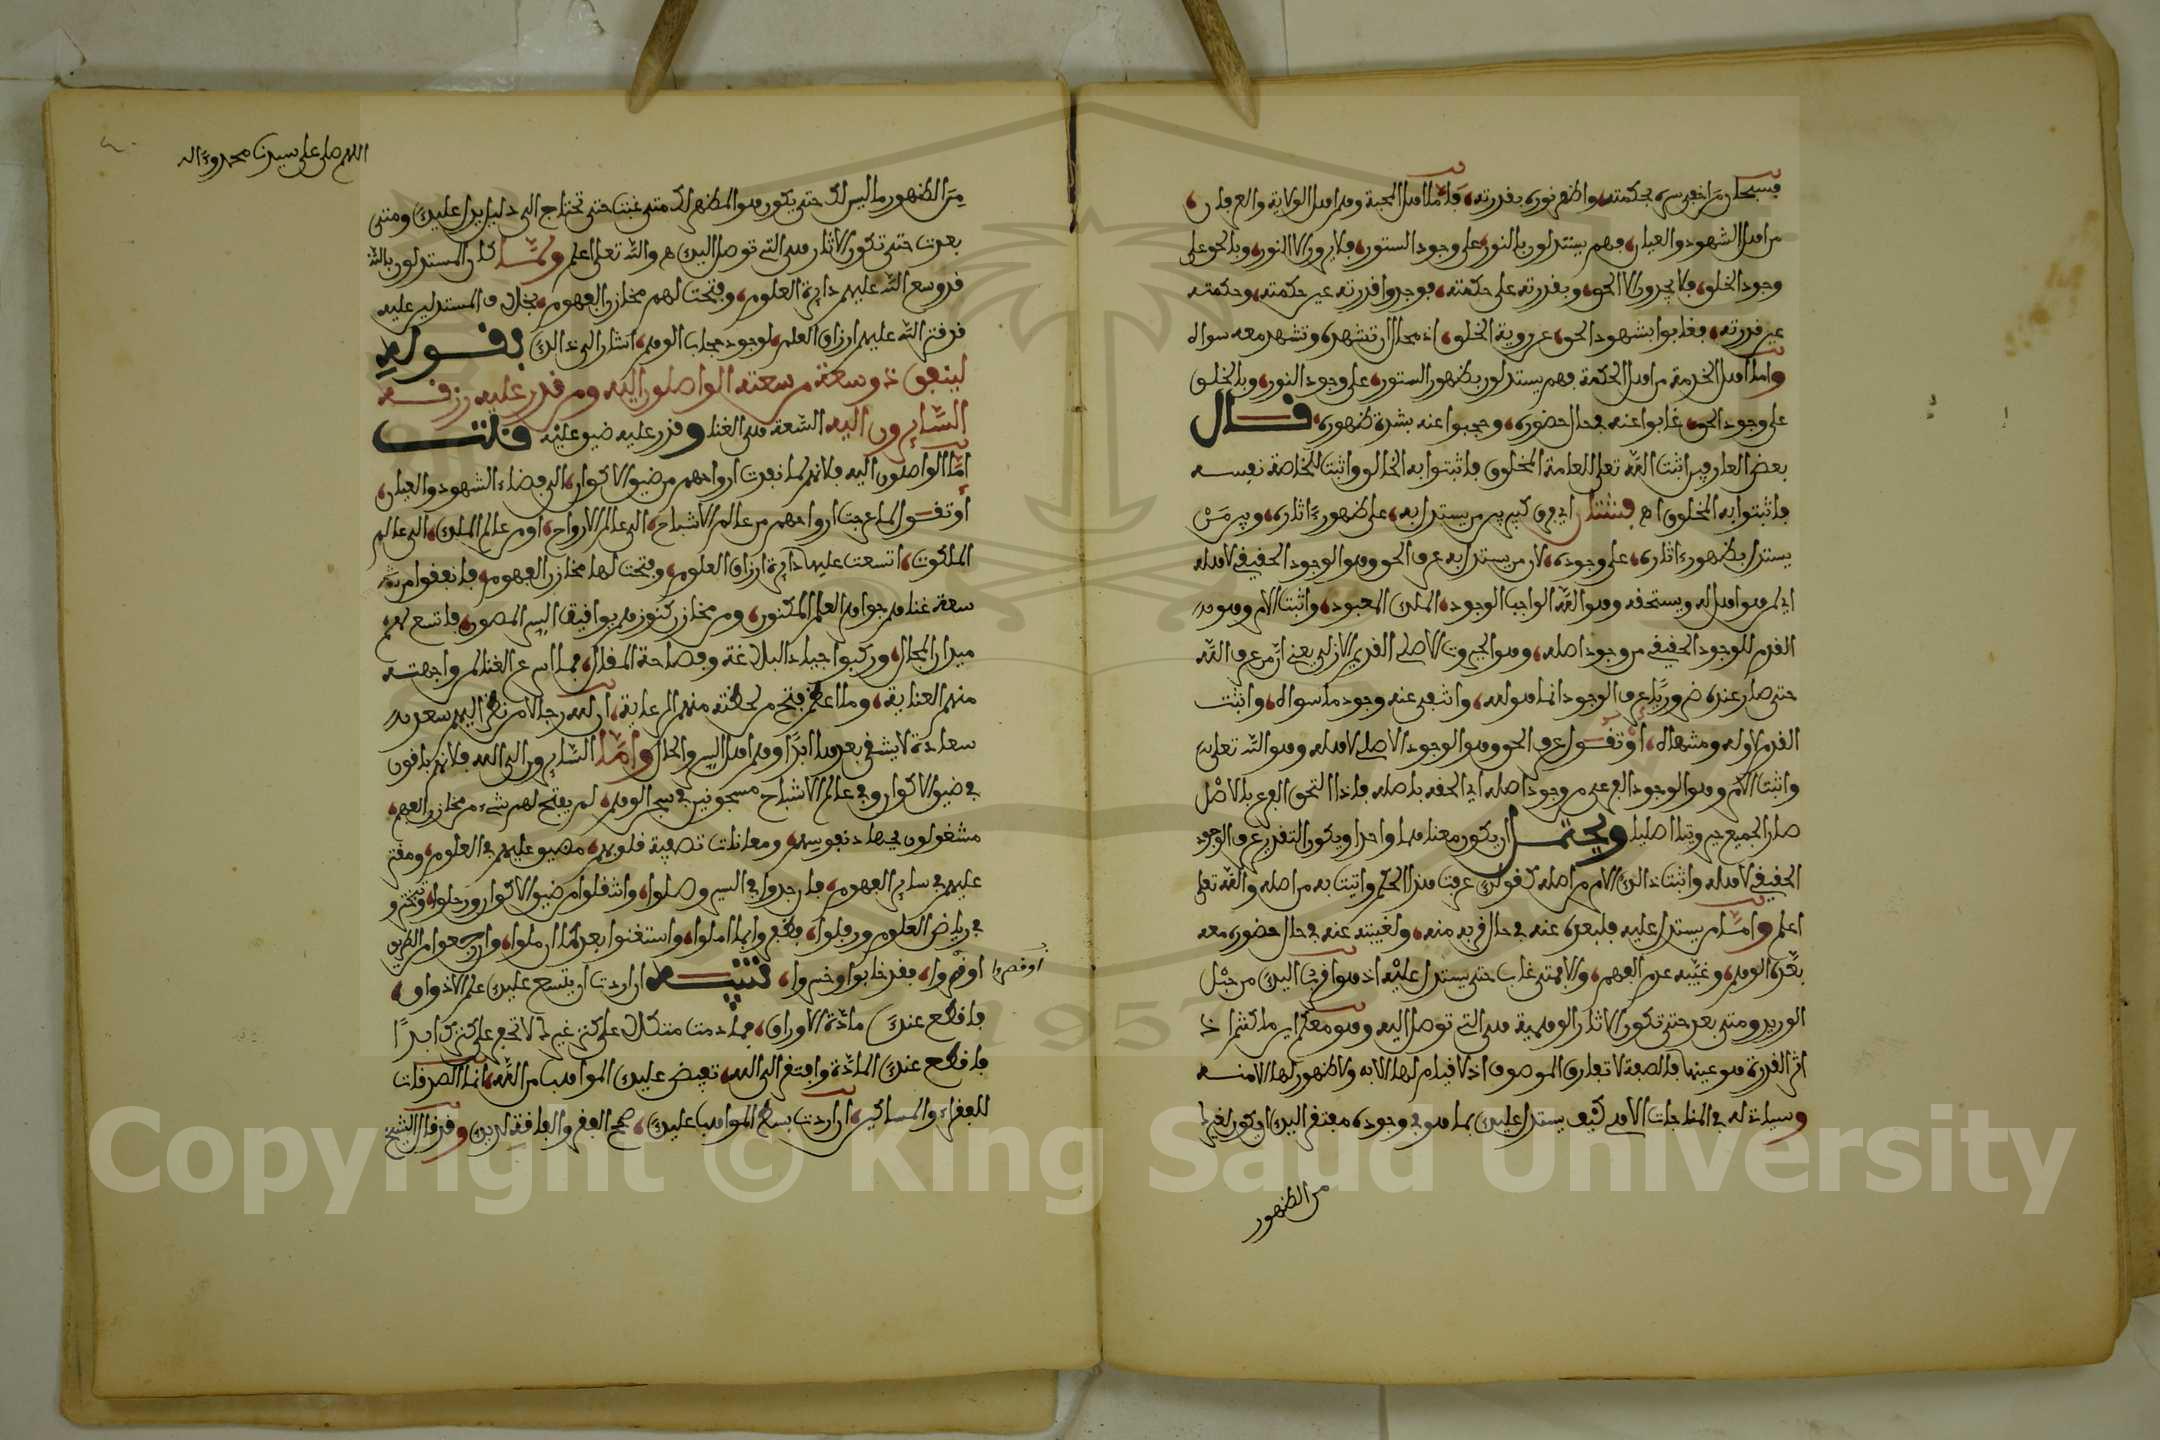 فسبحان من اخفى سره بحكمته واظهر نوره بقدرته فاما اهل المحبة وهم اهل الولاية والعرفان
من اهل الشهود والعيان فهم يستدلون بالنور على وجود الستور فلا يرون الا النور وبالحق على
وجود الخلق فلا يجدون الا الحق وبقدرته على حكمته فوجدوا قدرته عين حكمته وحكمته
عين قدرته فغابوا بشهود الحق عن روية الخلق اذ محال ان تشهده وتشهد معه سواه
واما اهل الخدمة من اهل الحكمة فهم يستدلون بظهور الستور على وجود النور وبالخلق
على وجود الحق غابوا عنه في حال حضوره وحجبوا عنه بشدة ظهوره قال
بعض العارفين اثبت الله تعلى للعامة المخلوق فاثبتوا به الخالق واثبت للخاصة نفسه
فاثبتوا به المخلوق اه فشتان اي فرق كبير بين من يستدل به على ظهور ءاثاره وبين من
يستدل بظهور ءاثاره على وجوده لان من يستدل به عرف الحق وهو الوجود الحقيقي لاهله
اي لمن هو اهل له ويستحقه وهو الله الواجب الوجود الملك المعبود واثبت الامر وهو
القدم للوجود الحقيقي من وجود اصله وهو الجبروت الاصلي القديم الازلي يعني ان من عرف الله
حتى صار عنده ضروريا عرف الوجود انما هو له وانتفى عنه وجود ما سواه واثبت
القدم لاوله ومنتهاه او تقول عرف الحق وهو الوجود الاصلي لاهله وهو الله تعلى
واثبت الامر وهو الوجود الفرعي من وجود اصله اي الحقه باصله فاذا التحق الفرع بالاصل
صار الجميع جبروتيا اصليا ويحتمل ان يكون معناهما واحدا ويكون التقدير عرف الوجود
الحقيقي لاهله واثبت ذالك الامر من اصله كقولك عرفت هذا الحكم واتيت به من اصله والله تعلى
اعلم واما من يستدل عليه فلبعده عنه في حال قربه منه ولغيبته عنه في حال حضوره معه
بعده الوهم وغيبه عدم الفهم والا فمتى غاب حتى يستدل عليه اذ هو اقرب اليك من حبل
الوريد ومتى بعد حتى تكون الاثار الوهمية هي التي توصل اليه وهو معكم اين ما كنتم اذ
اثر القدرة هو عينها فالصفة لا تفارق الموصوف اذ لا قيام لها الا به ولا ظهور لها الا منه
وسياتي له في المناجات الاهي كيف يستدل عليك بما هو في وجوده مفتقر اليك ايكون لغيرك
من الظهور
اللهم صل على سيدنا محمد وءاله
من الظهور ما ليس لك حتى يكون هو المظهر لك متى غبت حتى تحتاج الى دليل يدل عليك ومتى
بعدت حتى تكون الاثار هي التي توصل اليك اه والله تعلى اعلم ولما كان المستدلون بالله
قد وسع الله عليهم دايرة العلوم وفتحت لهم مخازن الفهوم بخلاف المستدلين عليه
قد قتر الله عليهم ارزاق العلم لوجود حجاب الوهم اشار الى ذالك بقوله
لينفق ذو سعة من سعته الواصلون اليه ومن قدر عليه رزقه
السايرون اليه السعة هي الغنا وقدر عليه ضيق عليه قلت
اما الواصلون اليه فلانهم لما نفذت ارواحهم من ضيق الاكوان الى فضاء الشهود والعيان
او تقول لما عرجت ارواحهم من عالم الاشباح الى عالم الارواح او من عالم الملك الى عالم
الملكوت اتسعت عليها دايرة ارزاق العلوم وفتحت لها مخازن الفهوم فانفقوا من
سعة غناهم جواهر العلم المكنون ومن مخازن كنوزهم يواقيت السر المصون فاتسع لهم
ميدان المجال وركبوا جياد البلاغة وفصاحة المقال فما اسرع الغنا لمن واجهته
منهم العناية وما اعظم فتح من لحظته منهم الرعاية ان لله رجالا من نظر اليهم سعد
سعادة لا يشقى بعدها ابدا وهم اهل السر والحال واما السايرون الى الله فلانهم باقون
في ضيق الاكوان وفي عالم الاشباح مسجونين في سجن الوهم لم يفتح لهم شيء من مخازن الفهم
مشغولون بجهاد نفوسهم ومعانات تصفية قلوبهم مضيق عليهم في العلوم ومقتر
عليهم في ساير الفهوم فان جدوا في السير وصلوا وانتقلوا من ضيق الاكوان ورحلوا وتبختروا
في رياض العلوم ورفلوا فظفروا بما املوا واستغنوا بعدما ارملوا وان رجعوا من الطريق
او قصروا
او قصروا فقد خابوا وخسروا تنبيه ان اردت ان يتسع عليك علم الاذواق
فاقطع عنك مادة الاوراق فما دمت متكلا على كنز غيرك لا تحفر على كنزك ابدا
فاقطع عنك المادة وافتقر الى الله تفيض عليك المواهب من الله انما الصدقات
للفقراء والمساكين ان اردت بسط المواهب عليك صحح الفقر والفاقة لديك وقد قال الشيخ
Copyright © King Saud University
1957